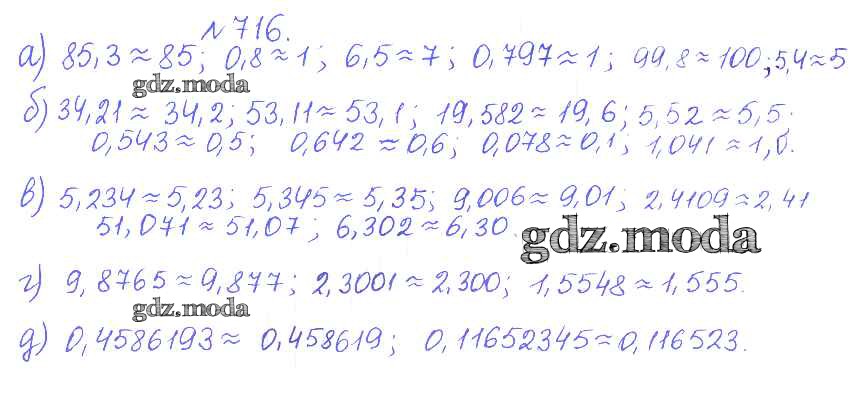 № 716.
а) 85,3 ≈ 85; 0,8 ≈ 1; 6,5 ≈ 7; 0,797 ≈ 1; 99,8 ≈ 100; 5,4 ≈ 5
gdz.moda
б) 34,21 ≈ 34,2; 53,11 ≈ 53,1; 19,582 ≈ 19,6; 5,52 ≈ 5,5.
0,543 ≈ 0,5; 0,642 ≈ 0,6; 0,078 ≈ 0,1; 1,041 ≈ 1,0.
в) 5,234 ≈ 5,23; 5,345 ≈ 5,35; 9,006 ≈ 9,01; 2,4109 ≈ 2,41
51,071 ≈ 51,07; 6,302 ≈ 6,30.
gdz.moda
г) 9,8765 ≈ 9,877; 2,3001 ≈ 2,300; 1,5548 ≈ 1,555.
gdz.moda
д) 0,4586193 ≈ 0,458619; 0,11652345 ≈ 0,116523.